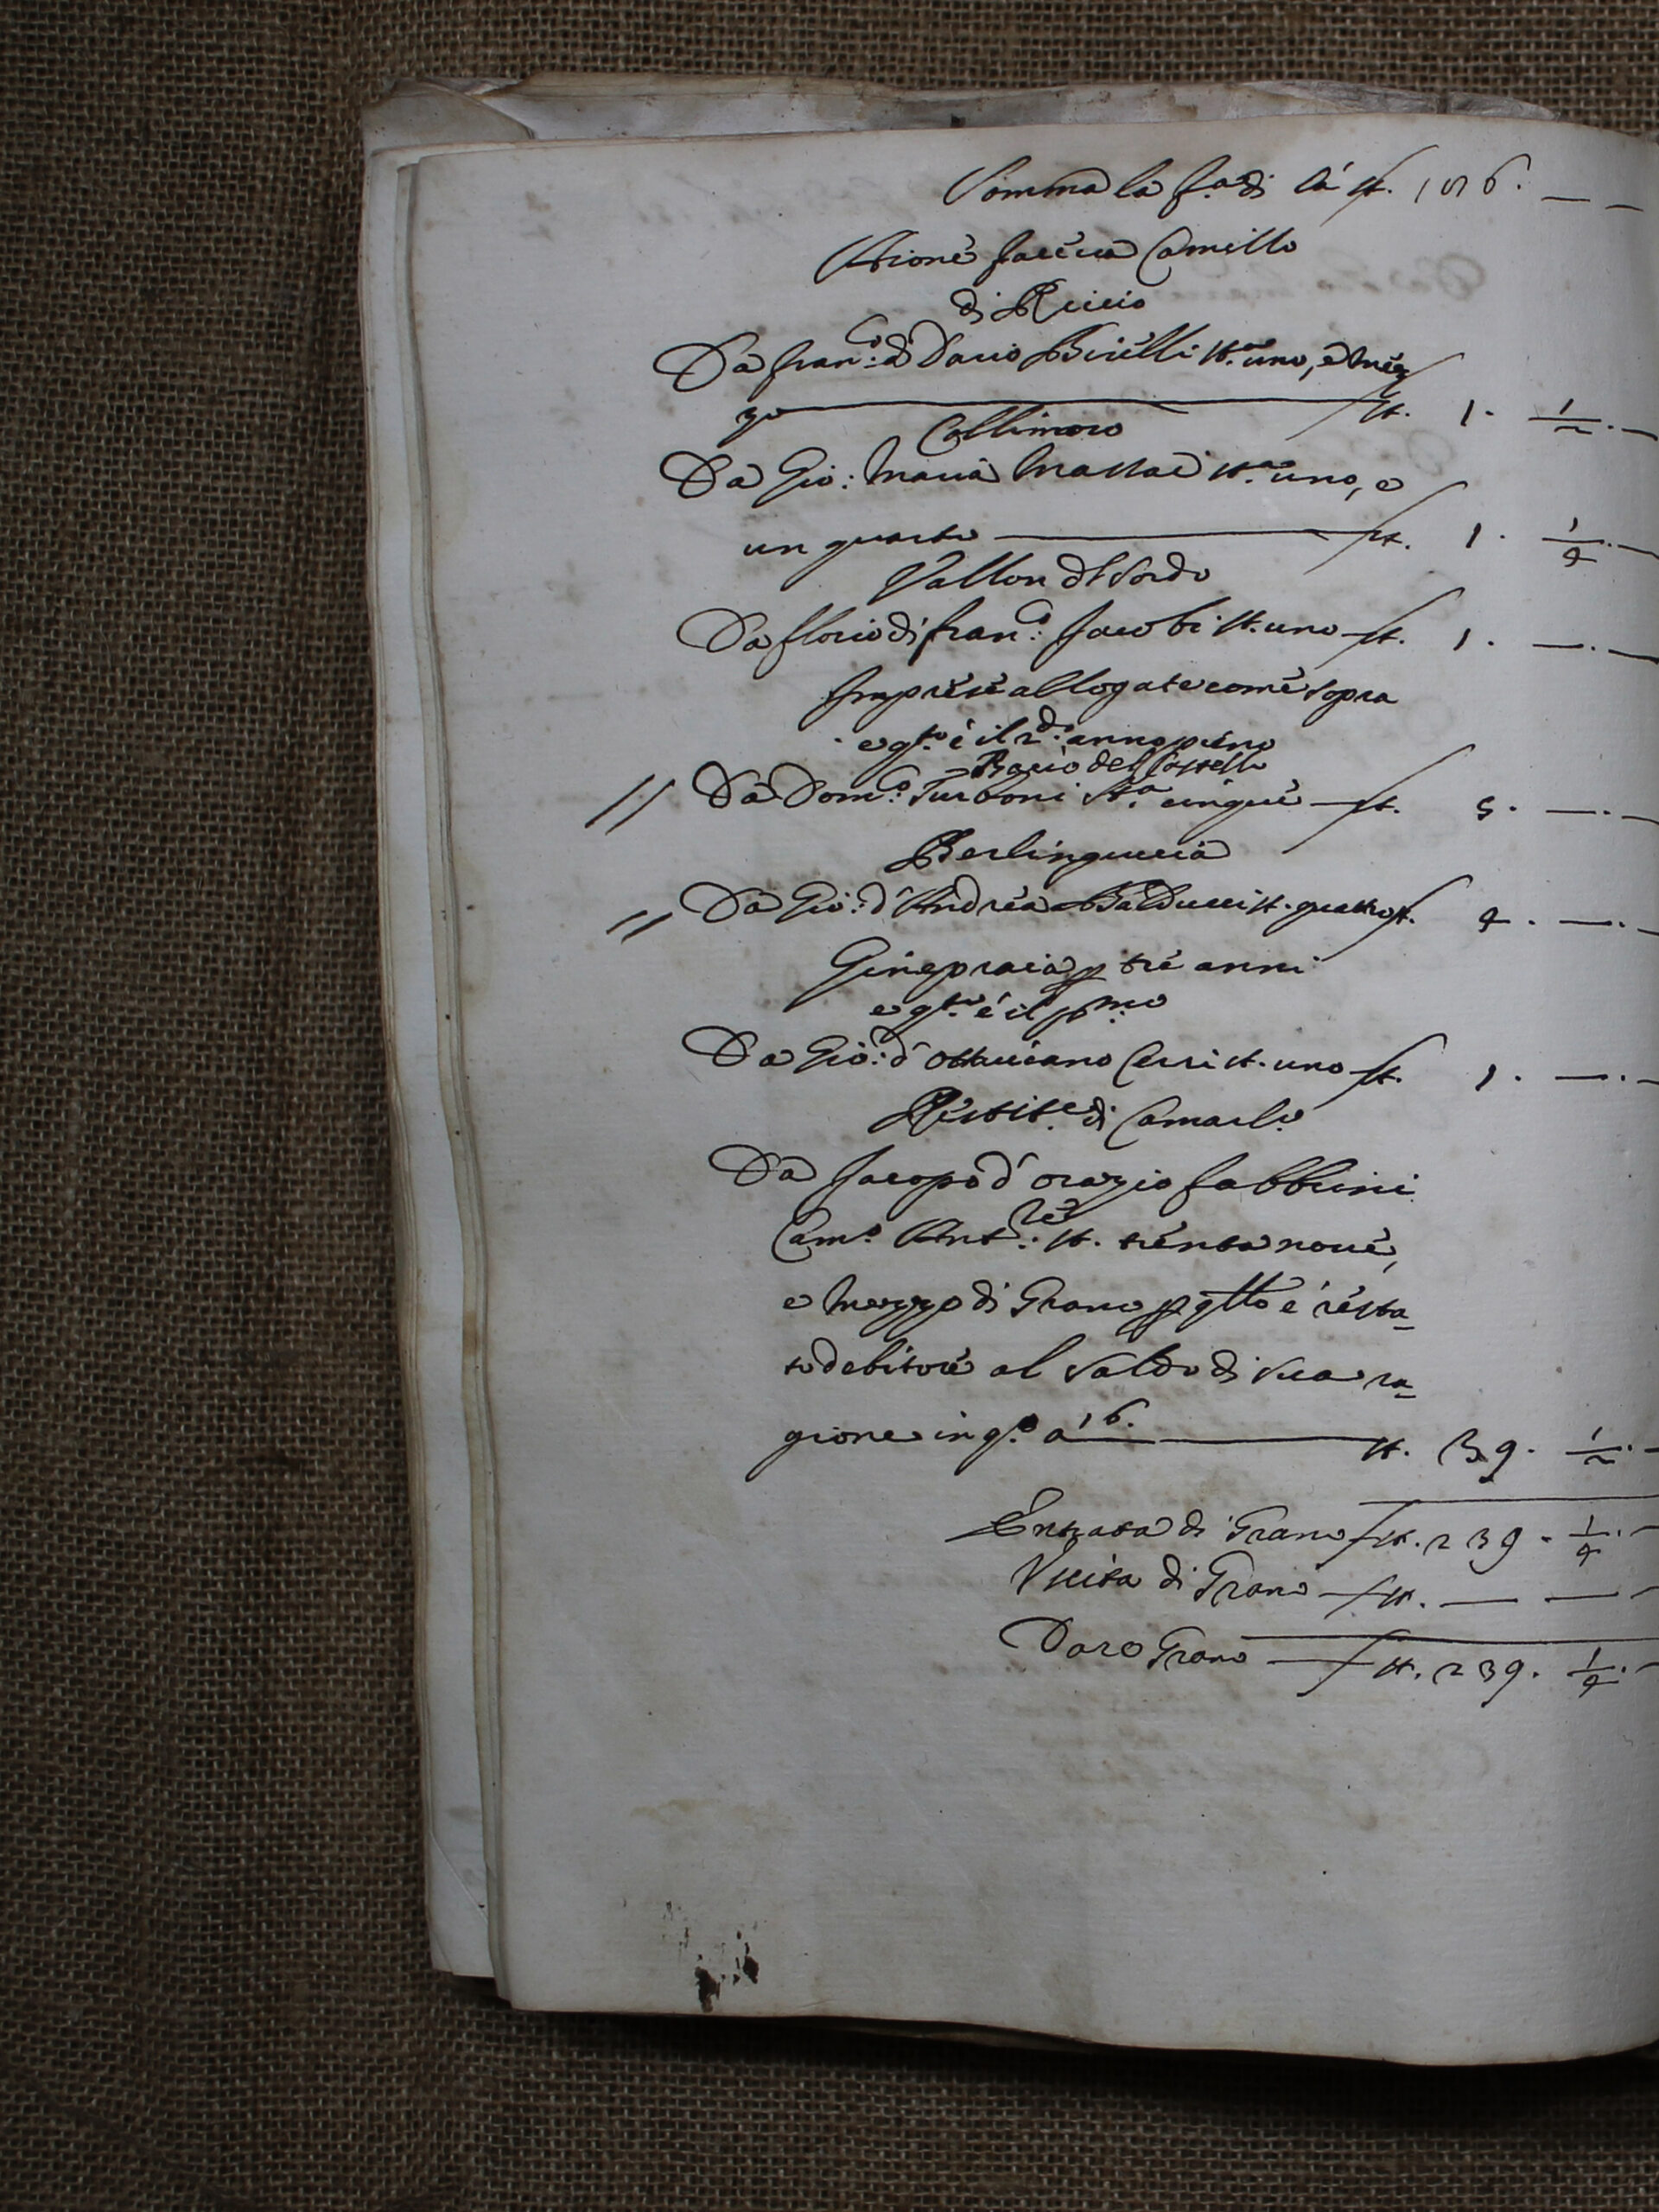 Somma la f.a di là st. 186. — —
di Riccio
Da Fran.co di Dario Binelli st.a uno, e mez
zo st. 1. 1/2. —
Collimoro
Da Gio: Maria Massai st.a uno, e
un quarto st. 1. 1/4. —
Vallon del Sordo
Da Florio di Fran.co Jacobi st. uno st. 1. —. —
Imprese allogate come sopra
e q.to è il 2.do anno pieno
Bacio del Castello
// Da Dom.co Turboni st.a cinque st. 5. —. —
Berlinguccia
// Da Gio: d'Andrea Balducci st. quattro st. 4. —. —
Ginepraia p tre anni
e q.to è il p.mo
Da Gio: d'Ottaviano Cerri st. uno st. 1. —. —
di Camarl.o
Da Jacopo d'Orazio Fabbrini
Cam.o Ant.re: st. trenta nove,
e mezzo di Grano p q.tto è resta-
to debitore al saldo di sua ra-
gione in q.o a 16. st. 39. 1/2. —
Entrata di Grano st. 239. 1/4. —
Uscita di Grano st. — — —
Daro Grano st. 239. 1/4. —